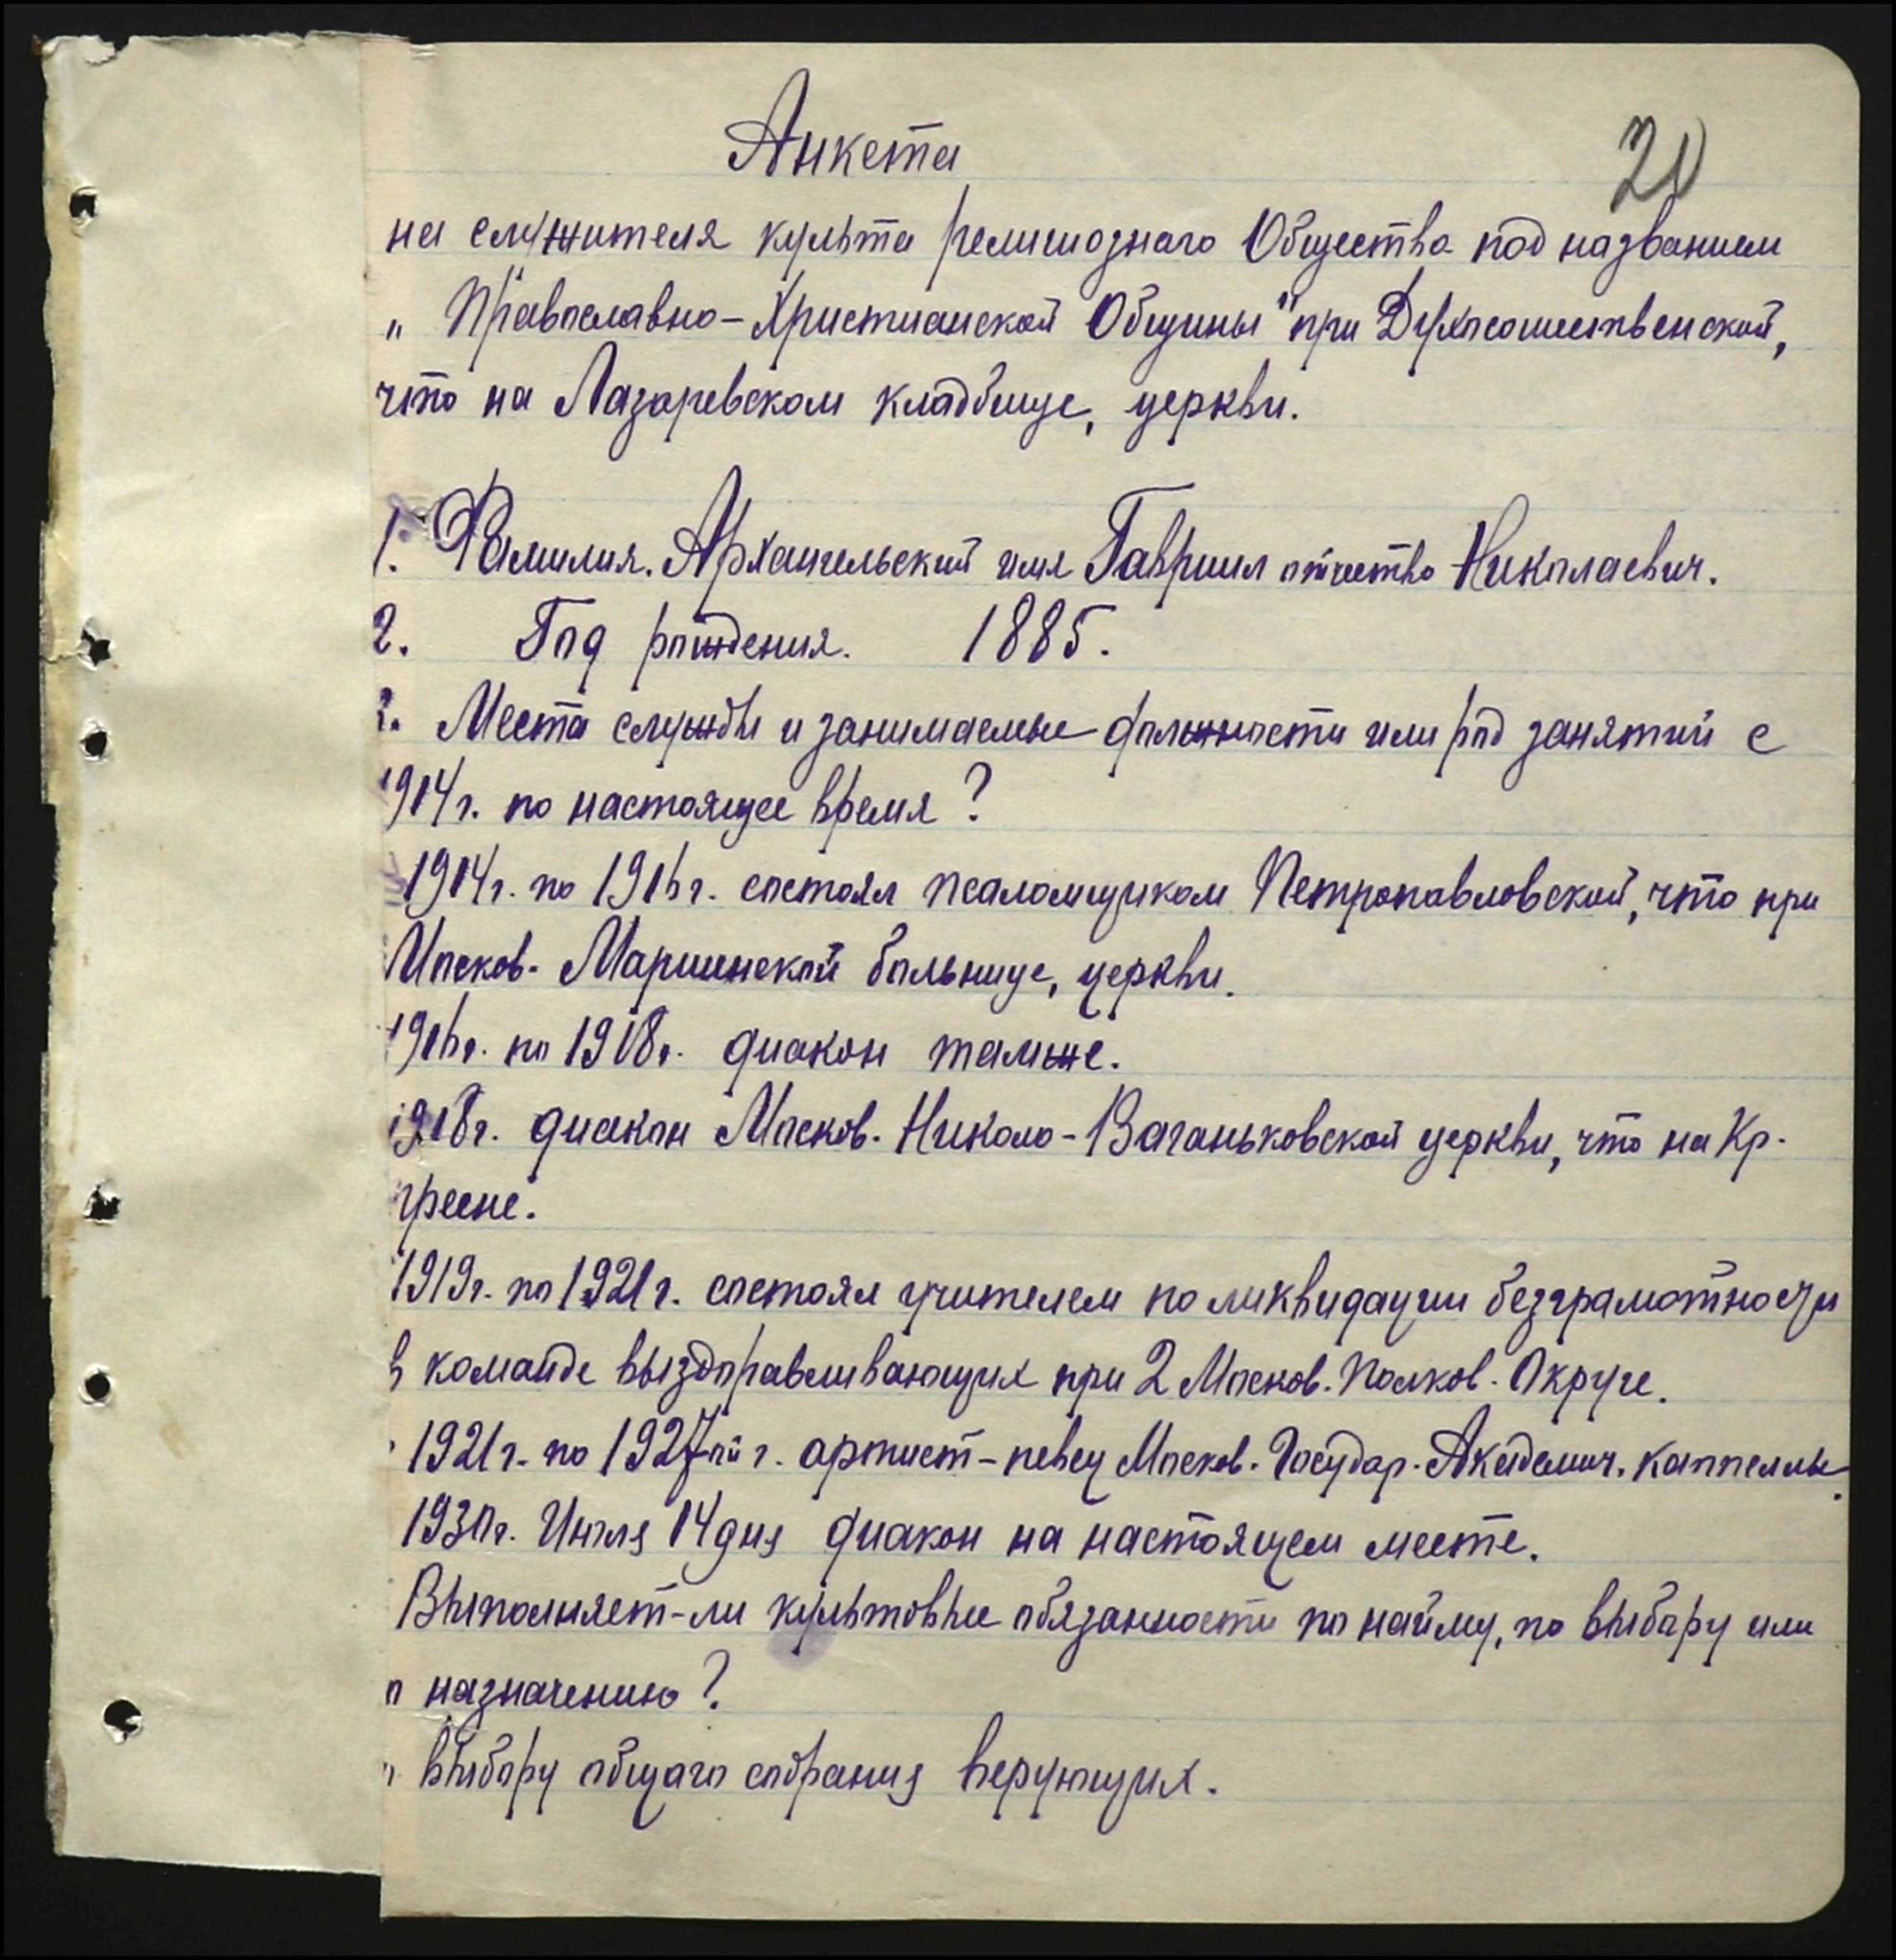 Анкета
20
на служителя культа религиознаго Общества под названием
„Православно-Христианской Общины" при Духосошественской,
что на Лазаревском кладбище, церкви.
1. Фамилия. Архангельский имя Гавриил отчество Николаевич.
2. Год рождения. 1885.
3. Места службы и занимаемые должности или род занятий с
1914 г. по настоящее время?
1914 г. по 1916 г. состоял псаломщиком Петропавловской, что при
Москов. Мариинской больнице, церкви.
1916 г. по 1918 г. диакон тамже.
1918 г. диакон Москов. Николо-Ваганьковской церкви, что на Кр.
пресне.
1919 г. по 1921 г. состоял учителем по ликвидации безграмотности
в команде выздоравливающих при 2 Москов. Полков. Округе.
1921 г. по 1927 ой г. артист-певец Москов. Государ. Академич. Каппеллы.
1930 г. Июля 14 дня диакон на настоящем месте.
Выполняет-ли культовые обязанности по найму, по выбору или
о назначению?
о выбору общаго собрания верующих.